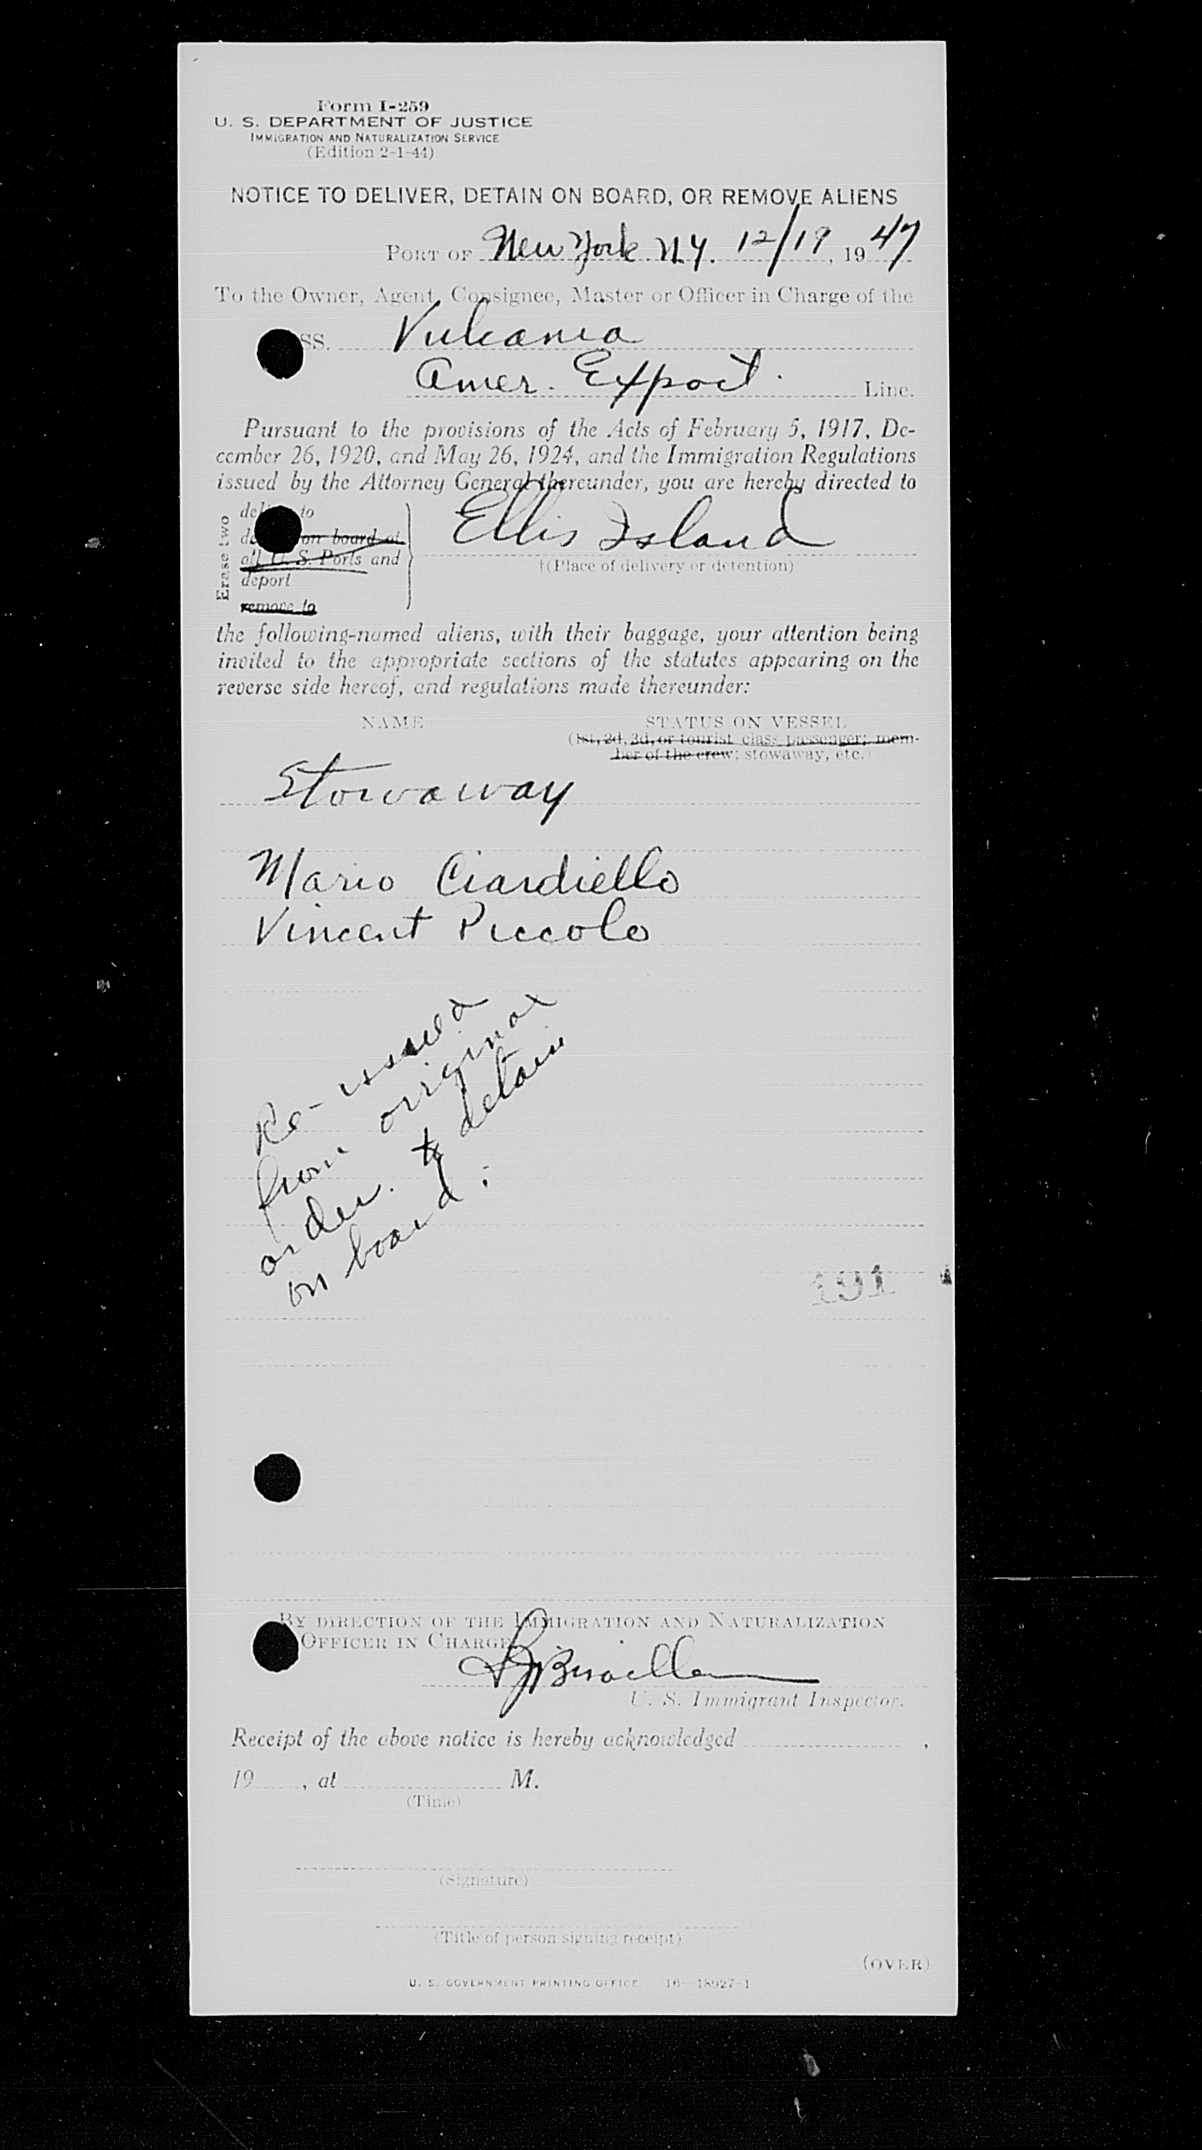 Form I-259
U. S. DEPARTMENT OF JUSTICE
IMMIGRATION AND NATURALIZATION SERVICE
(Edition 2-1-44)
NOTICE TO DELIVER, DETAIN ON BOARD, OR REMOVE ALIENS
PORT OF New York N.Y. 12/19, 1947
To the Owner, Agent, Consignee, Master or Officer in Charge of the
SS. Vulcania
Amer. Export. Line.
Pursuant to the provisions of the Acts of February 5, 1917, De-
cember 26, 1920, and May 26, 1924, and the Immigration Regulations
issued by the Attorney General thereunder, you are hereby directed to
Erase two
to
on board at
all U. S. Ports and
deport
remove to
Ellis Island
†(Place of delivery or detention)
the following-named aliens, with their baggage, your attention being
invited to the appropriate sections of the statutes appearing on the
reverse side hereof, and regulations made thereunder:
NAME STATUS ON VESSEL
(1st, 2d, 3d, or tourist class passenger; mem-
ber of the crew; stowaway, etc.)
Stowaway
Mario Ciardiello
Vincent Piccolo
Re-issued
from original
order. to detain
on board.
191
BY DIRECTION OF THE IMMIGRATION AND NATURALIZATION
OFFICER IN CHARGE
U. S. Immigrant Inspector.
Receipt of the above notice is hereby acknowledged ,
19 , at M.
(Time)
(Signature)
(Title of person signing receipt)
(OVER)
U. S. GOVERNMENT PRINTING OFFICE 16—18927-1